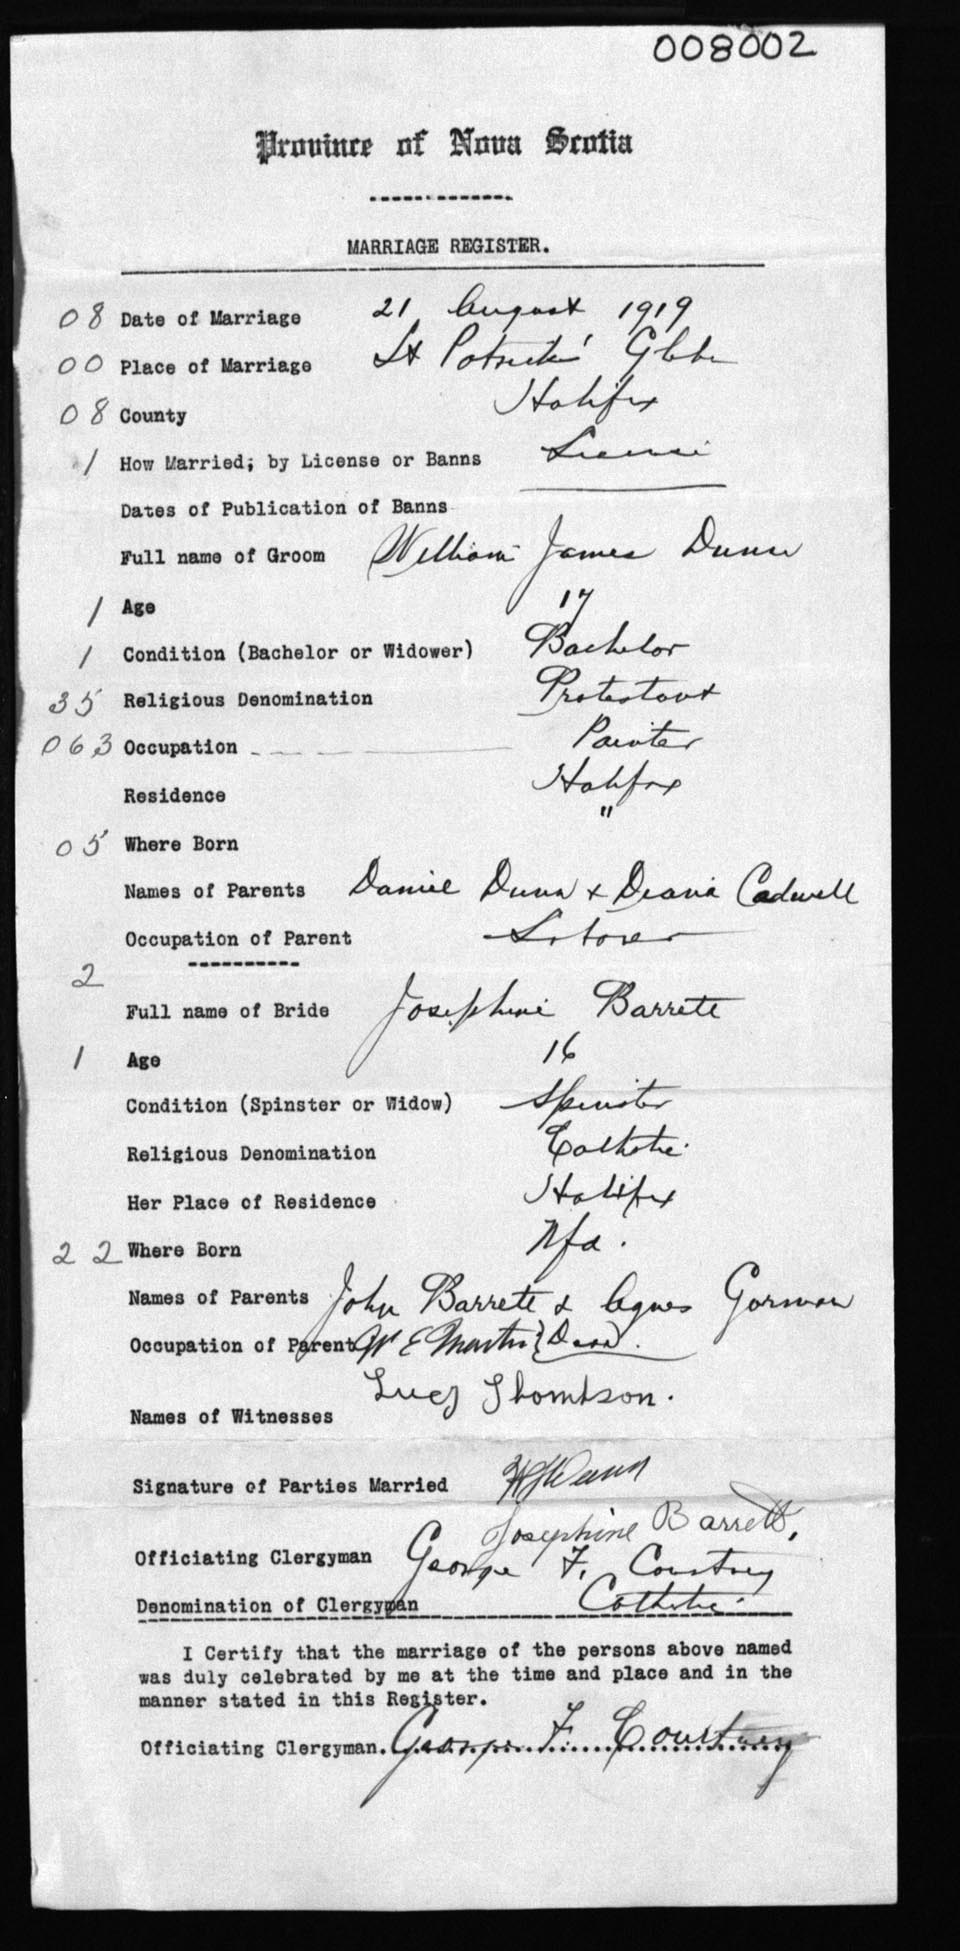 008002
Province of Nova Scotia
MARRIAGE REGISTER.
08 Date of Marriage 21 August 1919
00 Place of Marriage St Patrick's Glebe
08 County Halifax
1 How Married; by License or Banns License
Dates of Publication of Banns
Full name of Groom William James Dunn
1 Age 17
1 Condition (Bachelor or Widower) Bachelor
35 Religious Denomination Protestant
063 Occupation Painter
Residence Halifax
05 Where Born "
Names of Parents Daniel Dunn & Diana Cadwell
Occupation of Parent Laborer
2
Full name of Bride Josephine Barrett
1 Age 16
Condition (Spinster or Widow) Spinster
Religious Denomination Catholic
Her Place of Residence Halifax
22 Where Born Nfd.
Names of Parents John Barrett & Agnes Gorman
Occupation of Parent W E Martin } Dead.
Lucy Thomson.
Names of Witnesses
Signature of Parties Married W J Dunn
Josephine Barrett.
Officiating Clergyman George F. Courtney
Denomination of Clergyman Catholic
I Certify that the marriage of the persons above named
was duly celebrated by me at the time and place and in the
manner stated in this Register.
Officiating Clergyman. George F. Courtney